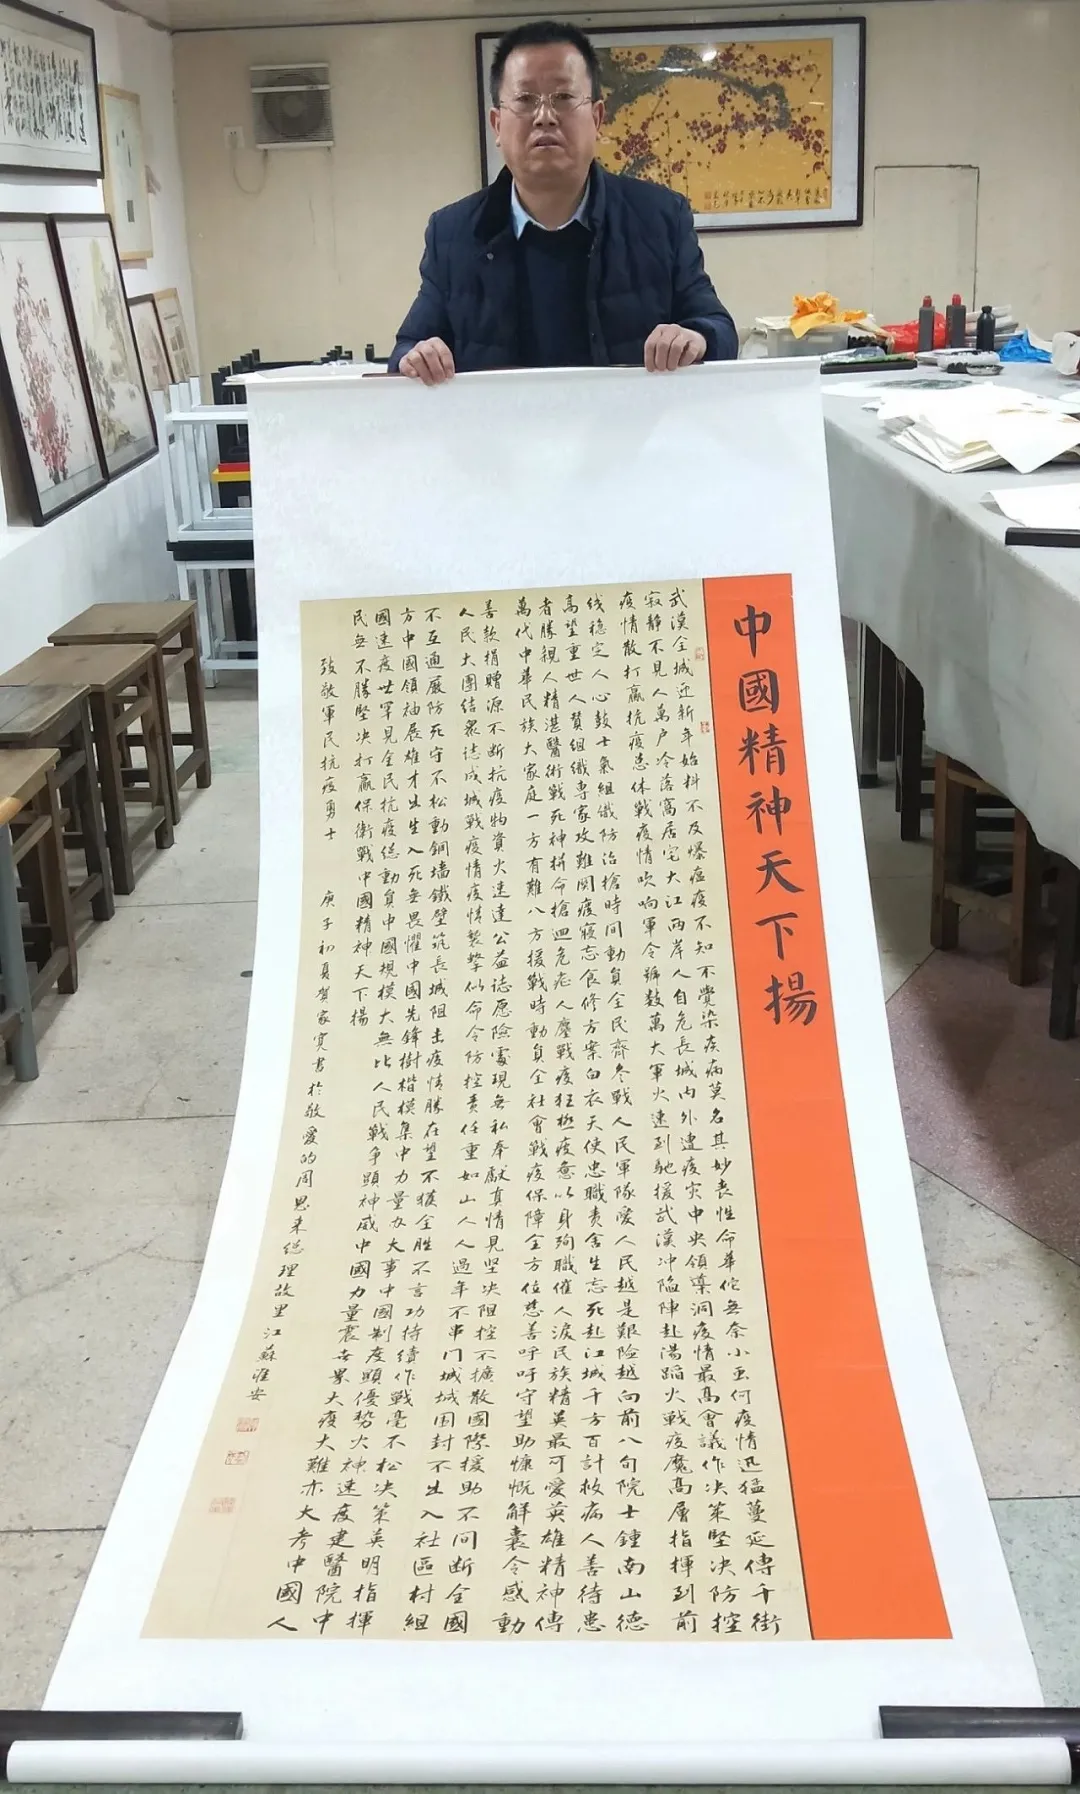 中國精神天下揚
武漢全城迎新年始料不及爆瘟疫不知不覺染疾病莫名其妙喪性命華佗無奈小虫何疫情迅猛蔓延傳千街
寂静不見人萬户冷落窩居宅大江两岸人自危長城内外遭疫灾中央領導洞疫情最高會議作决策堅决防控
疫情散打赢抗疫总体戰疫情吹响軍令號数萬大軍火速到馳援武漢冲陷陣赴湯蹈火戰疫魔高層指揮到前
线稳定人心鼓士氣組織防治搶時間動員全民齊冬戰人民軍隊愛人民越是艱險越向前八旬院士鍾南山德
高望重世人贊組織專家攻難関廢寝忘食修方案白衣天使忠職責舍生忘死赴江城千方百計救病人善待患
者勝親人精湛醫術戰死神拼命搶迴危人鏖戰疫狂極疲惫以身殉職催人淚民族精英最可愛英雄精神傳
萬代中華民族大家庭一方有難八方援戰時動員全社會戰疫保障全方位慈善呼吁守望助慷慨解囊令感動
善款捐贈源不断抗疫物資火速達公益志愿險處現無私奉獻真情見坚决阻控不擴散國際援助不间断全國
人民大團结衆志成城戰疫情疫情襲擊似命令防控責任重如山人人過年不串门城城围封不出入社區村組
不互通嚴防死守不松動銅墙鐵壁筑長城阻击疫情勝在望不獲全胜不言功持續作戰毫不松决策英明指揮
方中國領袖展雄才出生入死無畏懼中國先鋒樹楷模集中力量办大事中國制度顯優势火神速度建醫院中
國速度世罕見全民抗疫总動員中國規模大無比人民戰争顯神威中國力量震世界大疫大難亦大考中國人
民無不勝堅决打赢保衛戰中國精神天下揚
致敬軍民抗疫勇士 庚子初夏賀家書於敬愛的周恩来总理故里江蘇淮安